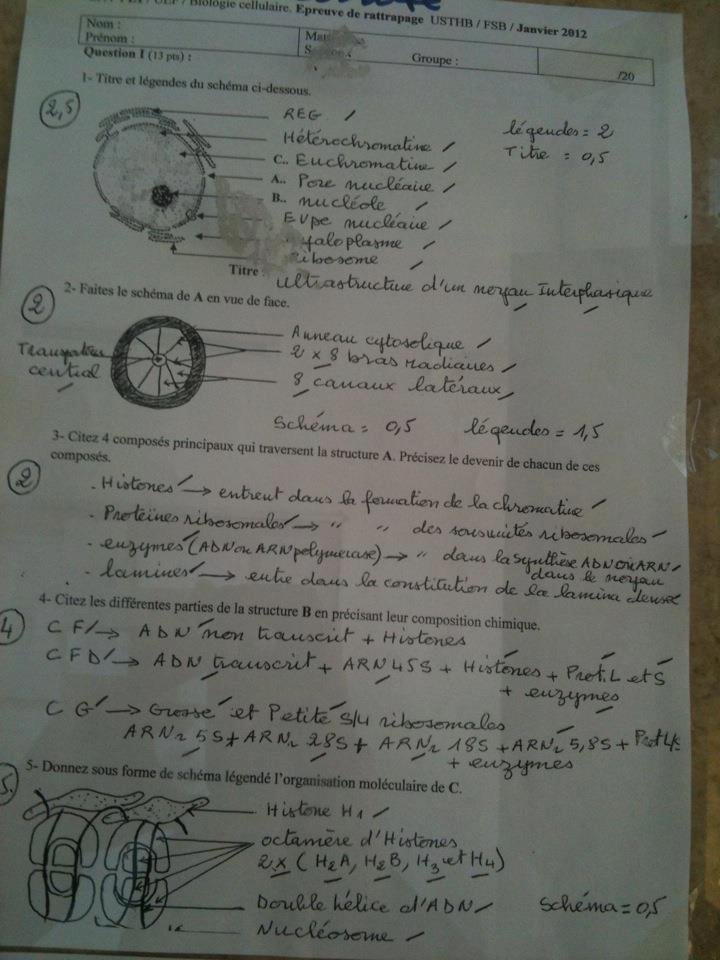 / Biologie cellulaire. Epreuve de rattrapage USTHB / FSB / Janvier 2012
Nom :
Prénom :
Groupe :
/20
Question I (13 pts) :
1- Titre et légendes du schéma ci-dessous.
2,5
REG
Hétérochromatine
légendes = 2
C.. Euchromatine
Titre = 0,5
A.. Pore nucléaire
B.. nucléole
Evpe nucléaire
yaloplasme
ribosome
Titre : ultrastructure d'un noyau Interphasique
2
2- Faites le schéma de A en vue de face.
Anneau cytosolique
2 x 8 bras radiaires
central
8 canaux latéraux
Schéma = 0,5 légendes = 1,5
3- Citez 4 composés principaux qui traversent la structure A. Précisez le devenir de chacun de ces
composés.
2
- Histones → entrent dans la formation de la chromatine
- Protéines ribosomales → " " des sousunités ribosomales
- enzymes (ADN ou ARN polymerase) → " dans la synthèse ADN ou ARN
dans le noyau
- lamines → entre dans la constitution de la lamina densa
4- Citez les différentes parties de la structure B en précisant leur composition chimique.
4
CF → ADN non transcrit + Histones
CFD → ADN transcrit + ARN 45S + Histones + Prot. L et S
+ enzymes
CG → Grosse et Petite S/U ribosomales
ARNr 5S + ARNr 28S + ARNr 18S + ARNr 5,8S + Prot
+ enzymes
5- Donnez sous forme de schéma légendé l'organisation moléculaire de C.
Histone H1
octamère d'Histones
2 x (H2A, H2B, H3 et H4)
Double hélice d'ADN
Schéma = 0,5
Nucléosome